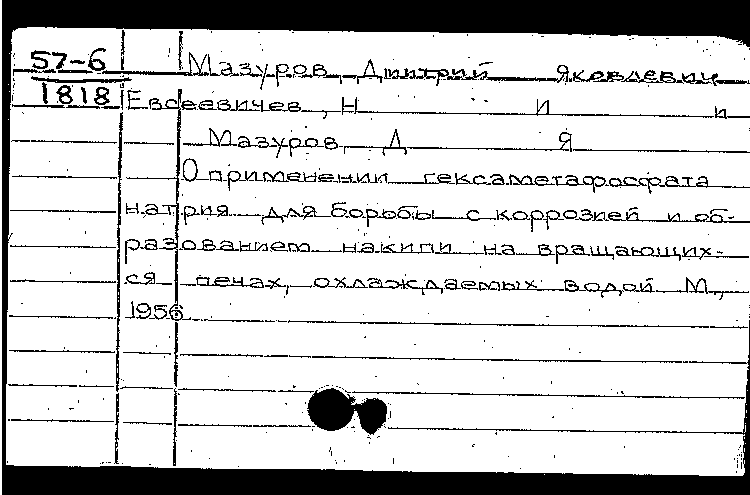 57-6 Мазуров, Дмитрий Яковлевич
1818 Евсеевичев, Н И и
Мазуров, Д Я
О применении гексаметафосфата
натрия для борьбы с коррозией и об-
разованием накипи на вращающих-
ся печах, охлаждаемых водой М.,
1956